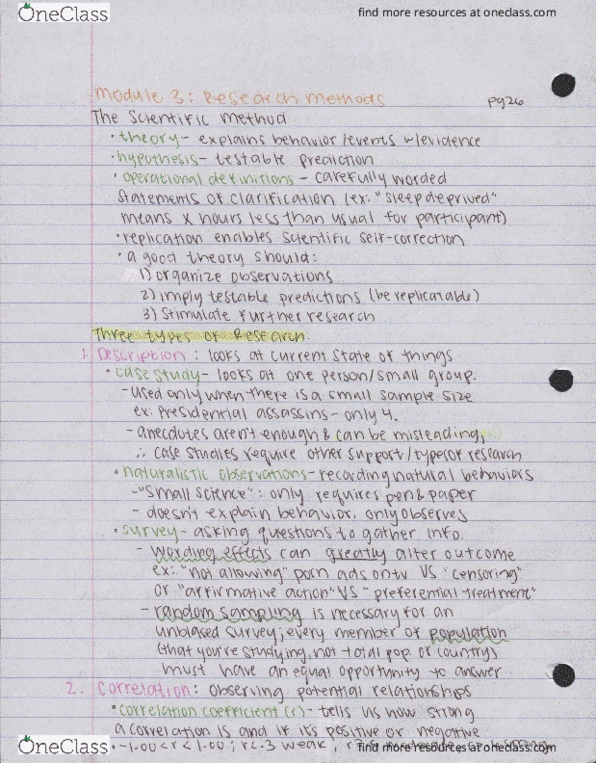 OneClass
find more resources at oneclass.com
Module 3: Research Methods pg26
The Scientific Method
• theory - explains behavior/events w/evidence
• hypothesis - testable prediction
• operational definitions - carefully worded
statements of clarification (ex: "sleep deprived"
means x hours less than usual for participant)
• replication enables scientific self-correction
• a good theory should:
1) organize observations
2) imply testable predictions (be replicatable)
3) stimulate further research
Three types of Research
1. Description: looks at current state of things
• case study - looks at one person/small group.
- used only when there is a small sample size
ex: presidential assassins - only 4.
- anecdotes aren't enough & can be misleading,
∴ case studies require other support/types of research
• naturalistic observations - recording natural behaviors
- "small science": only requires pen & paper
- doesn't explain behavior, only observes
• survey - asking questions to gather info.
- wording effects can greatly alter outcome
ex: "not allowing" porn ads on tv vs "censoring"
or "affirmative action" vs "preferential treatment"
- random sampling is necessary for an
unbiased survey; every member of population
(that you're studying, not total pop. of country)
must have an equal opportunity to answer
2. Correlation: observing potential relationships
• correlation coefficient (r) - tells us how strong
a correlation is and if it's positive or negative
• -1.00 < r < 1.00; r<.3 weak,
OneClass
find more resources at oneclass.com